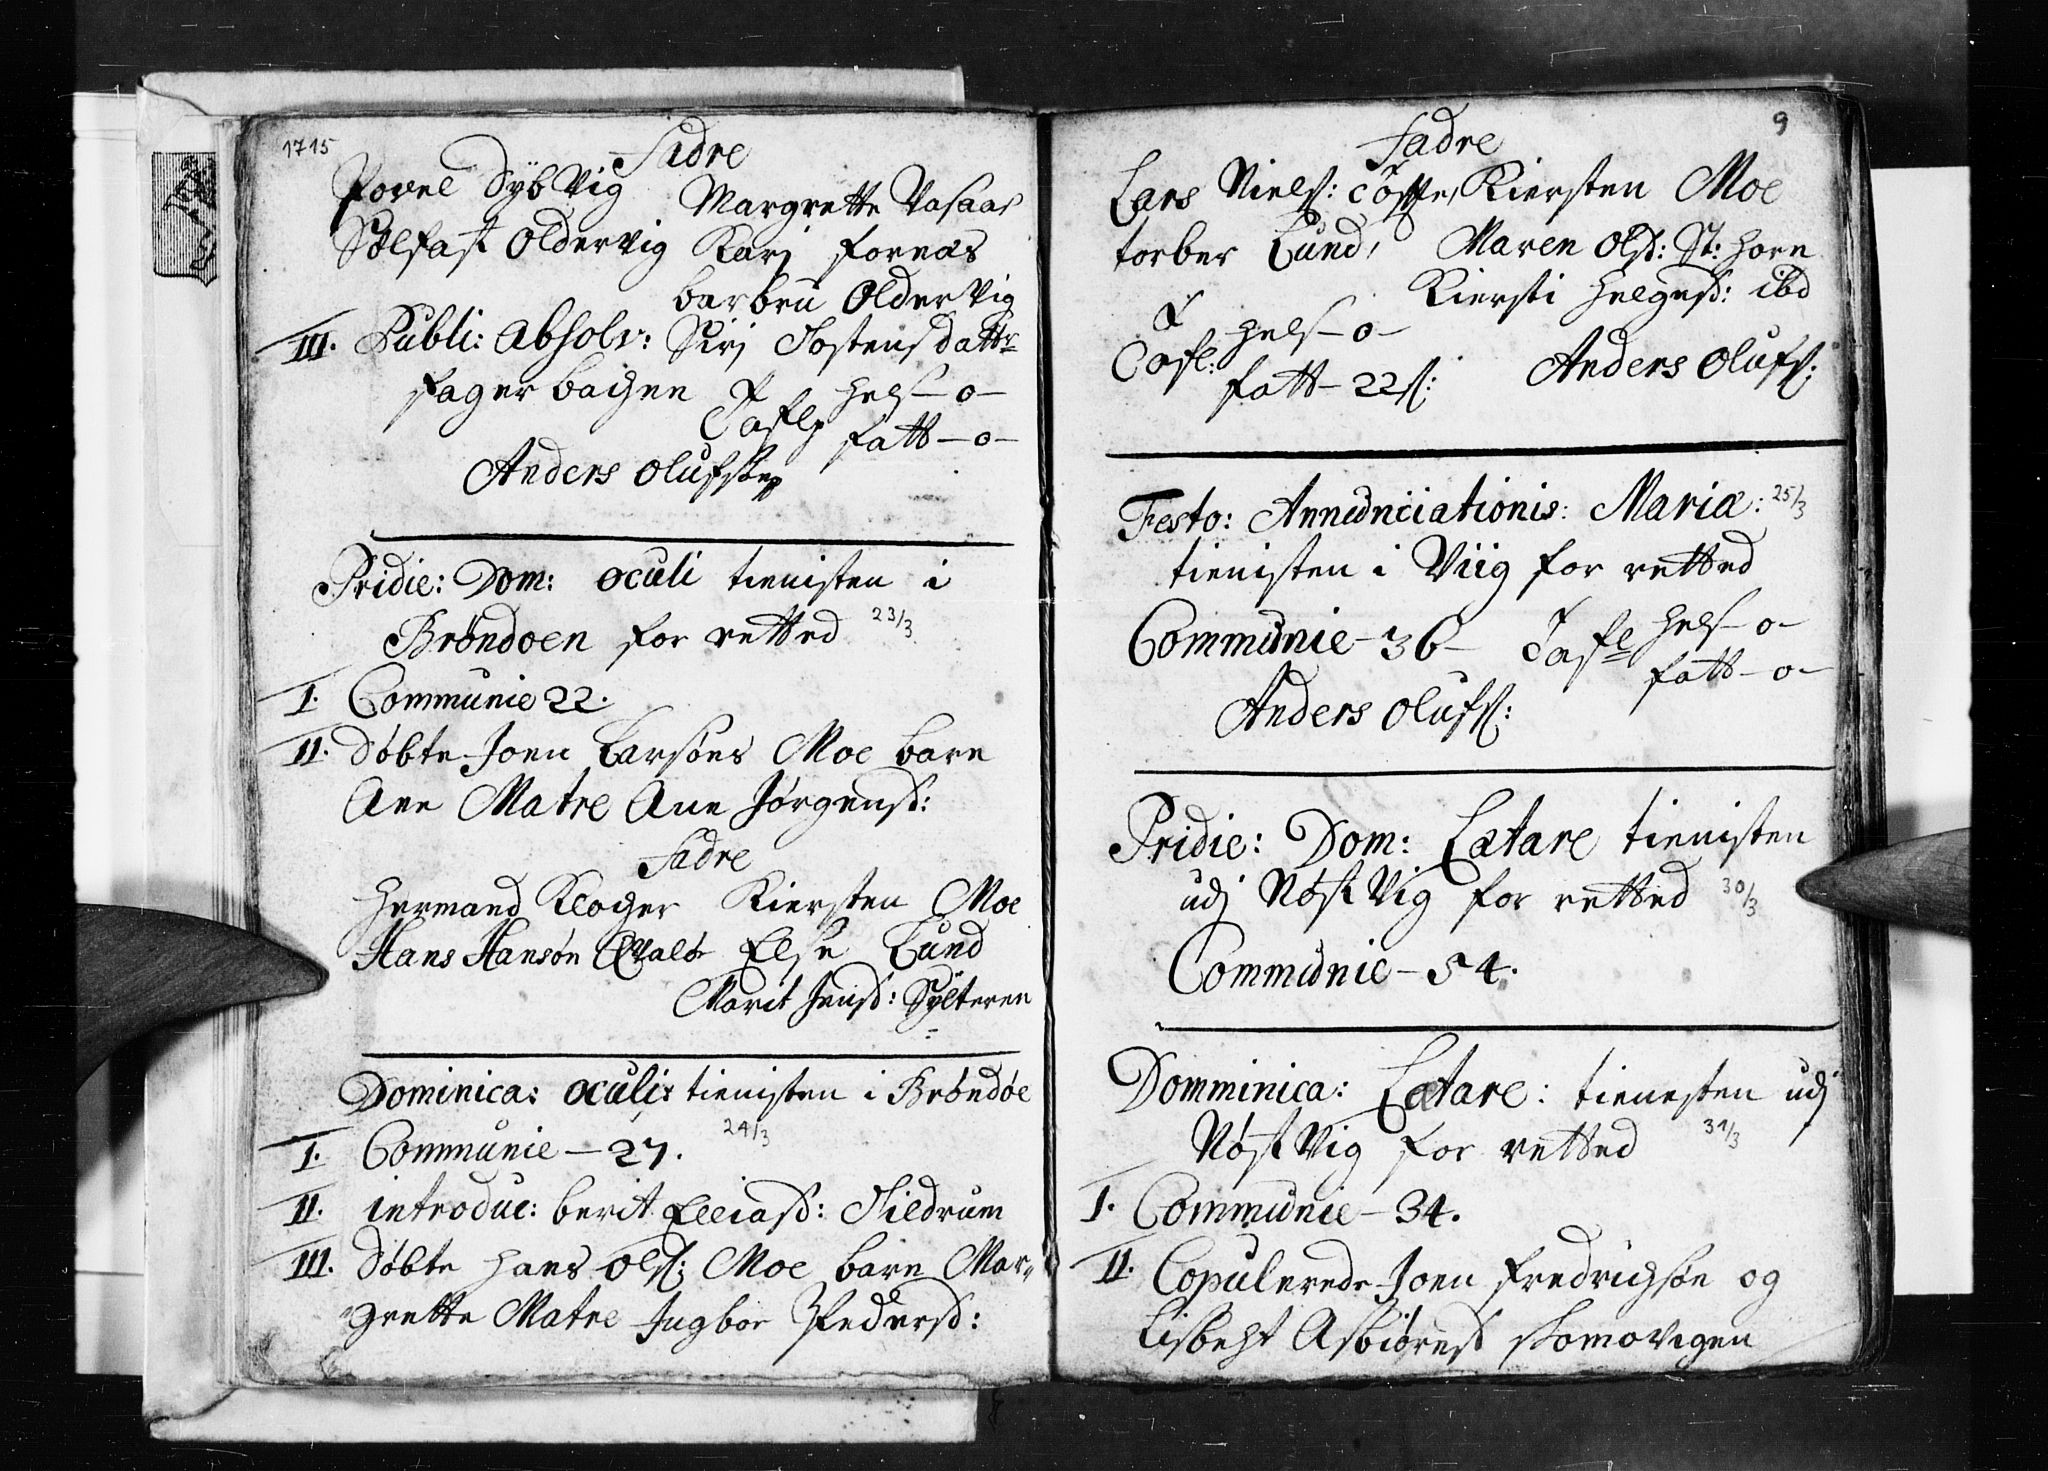 1715
Fadre
Povel Dybvig Margrette Vasaas
Solfast Oldervig Karj Fornæs
barbru Oldervig
III. Publi: absolv: Sirj Tostensdattr
fagerbachen helf - o -
Tafl fatt - o -
Anders Olufsen
Pridie: Dom: oculi tienisten i
Brøndøen for retted 23/3
I. Communie 22.
II. Døbte Joen Larsøns Moe barn
Ane Matre Ane Jørgensd:
Fadre
Hermand Klocher Kiersten Moe
Hans Hansøn Else Lund
Marit Jensd: Sylteren
Dominica: oculi: tienisten i Brøndøe
24/3
I. Communie - 27.
II. introduc: berit Elliasd: Sildrum
III. Døbte Hans Ols: Moe barn Mar-
grette Matre Ingbor Pedersd:
9
Fadre
Lars Niels: Kiersten Moe
torber Lund, Maren Olsd: St: Horn
Kiersti Helgesd: ibd
Tafl: helf - o -
fatt - 22 s: Anders Olufs:
Festo: Annunciationis: Mariæ: 25/3
tienisten i Viig for retted
Communie - 36 - Tafl helf - o -
fatt - o -
Anders Olufs:
Pridie: Dom: Lætare tienisten
udj Nøstvig for retted 30/3
Communie - 54.
Domminica: Lætare: tienesten udj
Nøstvig for retted 31/3
I. Communie - 34.
II. Copulerede Joen Fredrichsøn og
Lisbeht Asbiørnsd Stomovigen